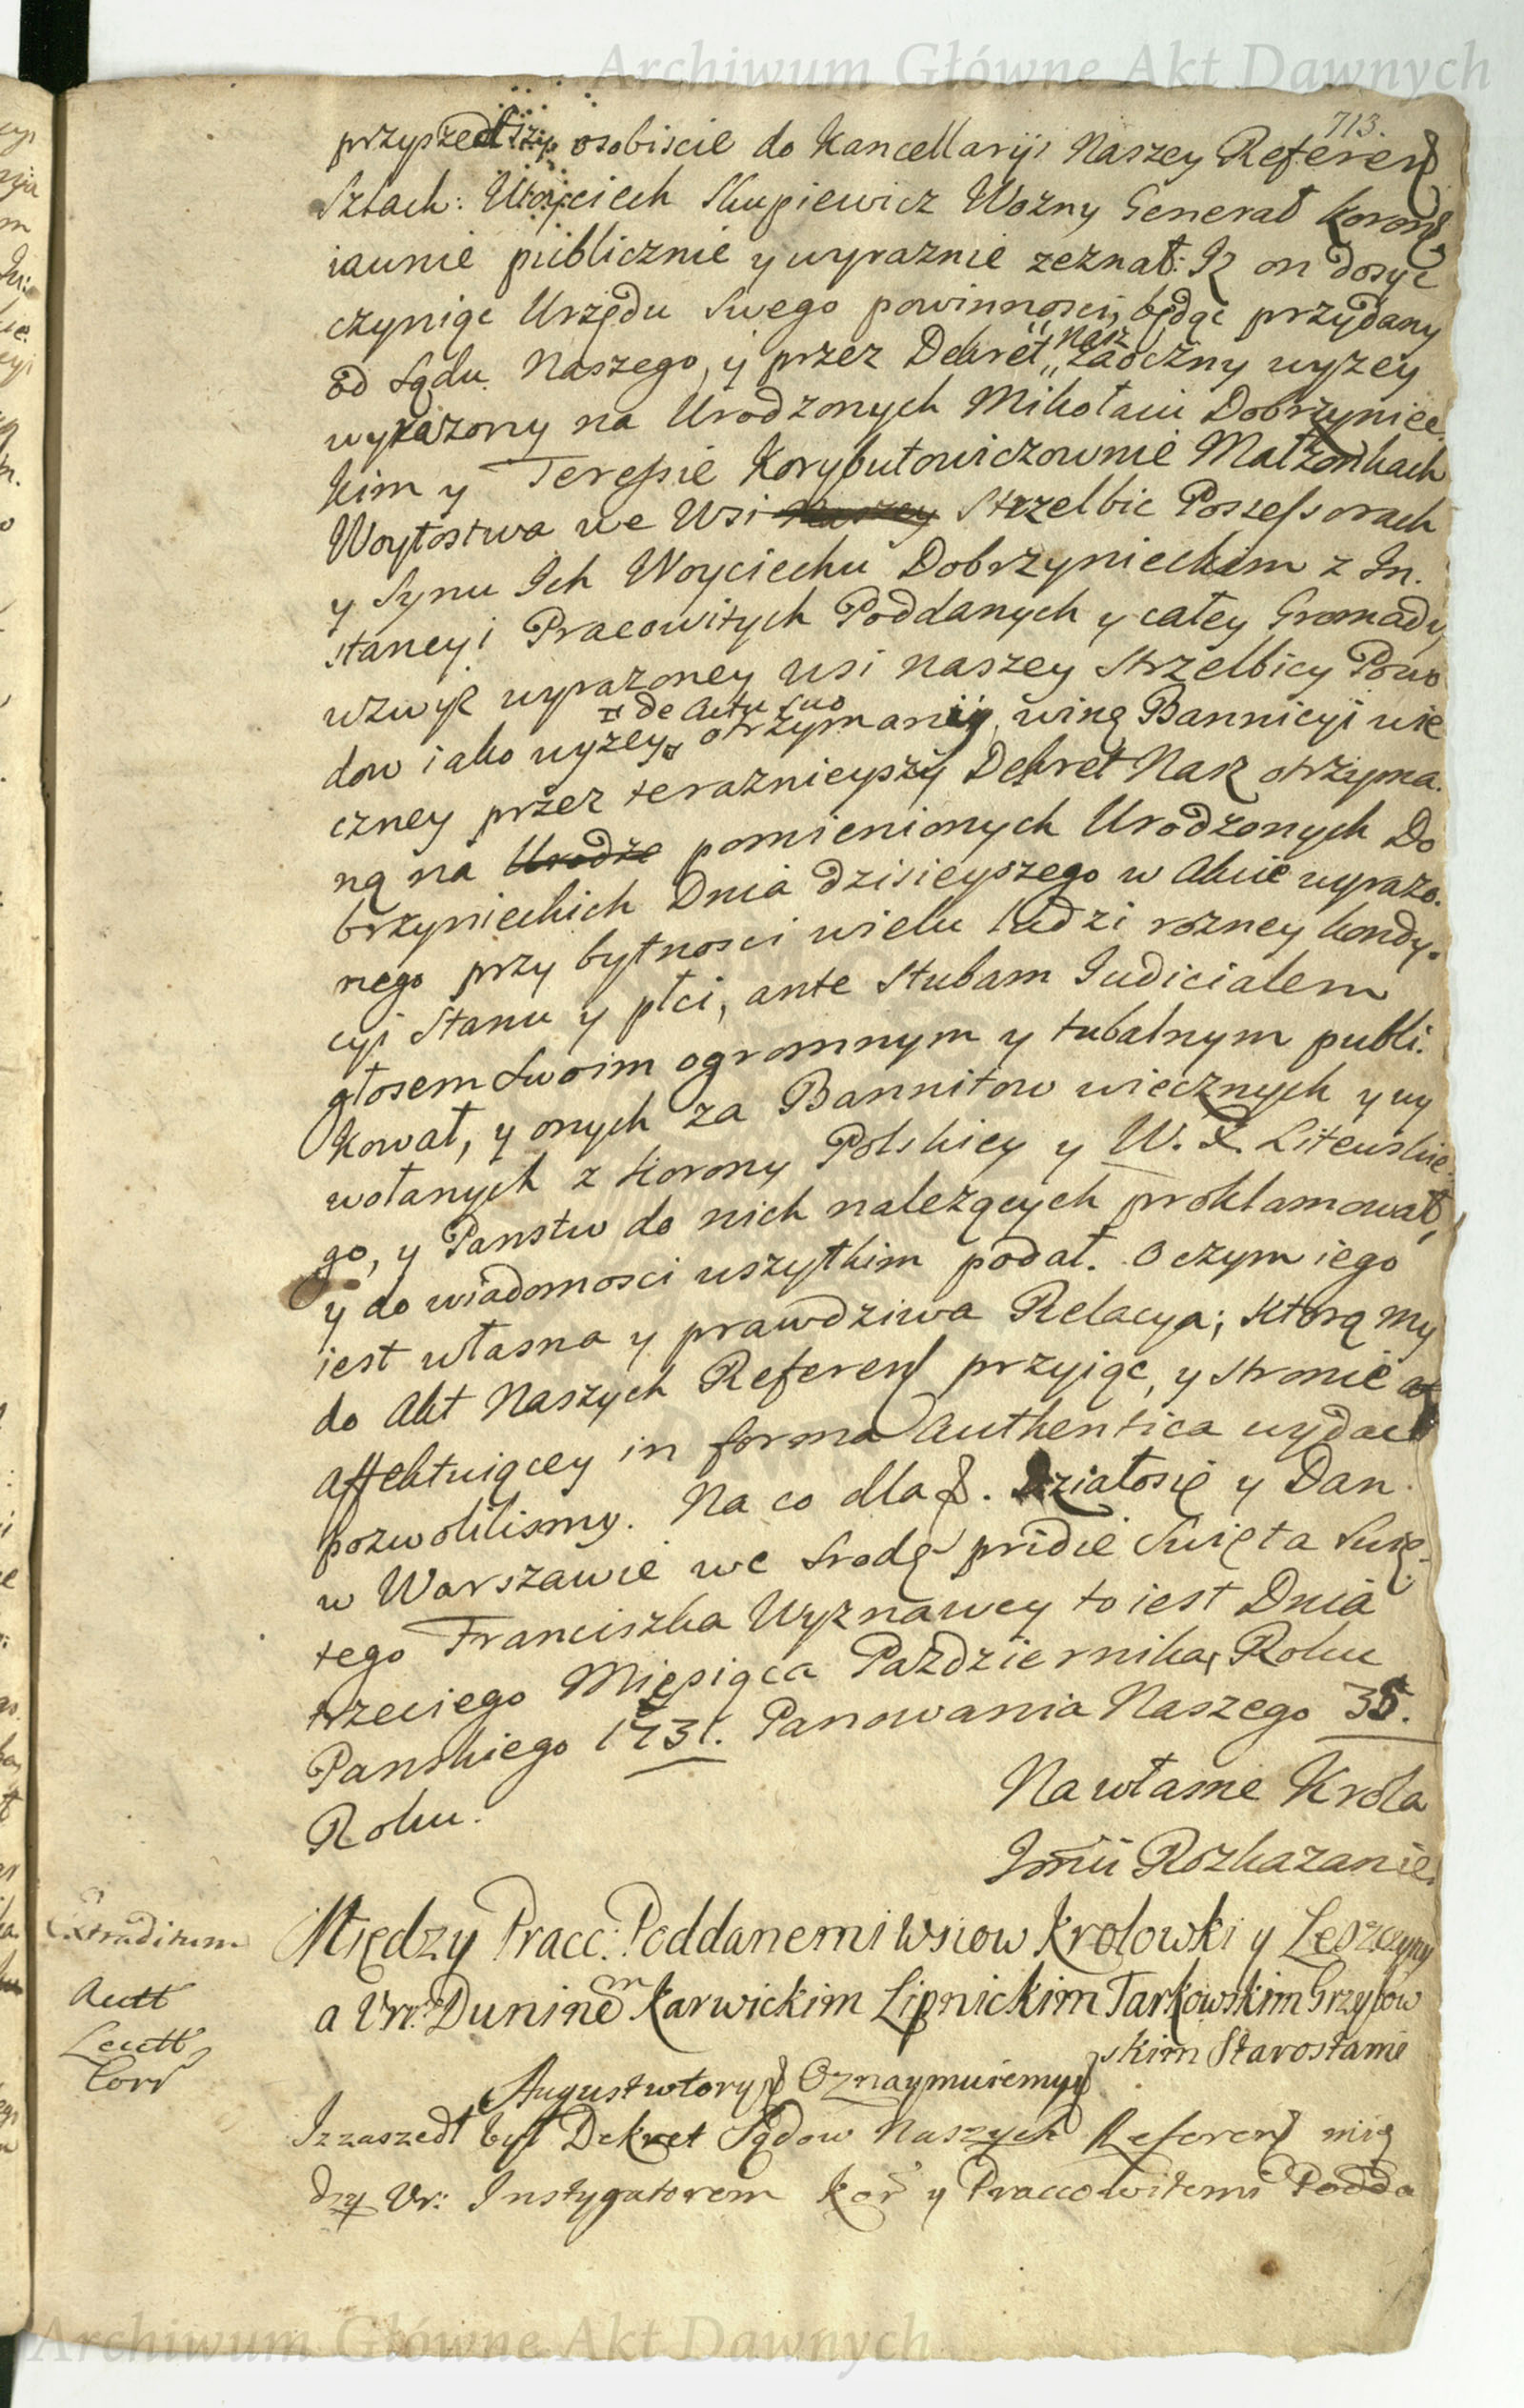 Archiwum Główne Akt Dawnych
713.
przyszedłszy osobiscie do Kancellaryi Naszey Referen
Szlach: Woyciech Skupiewicz Wozny Generał Koron
iaunie publicznie y wyraznie zeznał: Iz on dosyc
czyniąc Urzędu Swego powinnosci, będąc przydany
od Sądu Naszego, y przez Dekret Nasz Zaoczny wyzey
wyrazony na Urodzonych Mikołaiu Dobrzyniec
kim y Teressie Korybutowiczownie Małzonkach
Woytostwa we Wsi Naszey Strzelbic Possessorach
y Synu Ich Woyciechu Dobrzynieckim z In.
stancyi Pracowitych Poddanych y całey Gromady
wzwyz wyrazoney wsi naszey Strzelbicy Powo
dow iako wyzey de Actu suo otrzymaniy, winę Bannicyi wie
czney przez teraznieyszy Dekret Nasz otrzyma.
ną na Urodzo pomienionych Urodzonych Do
brzynieckich Dnia dzisieyszego w Akcie wyrazo.
nego przy bytnosci wielu ludzi rozney kondy.
cyi Stanu y płci, ante Stubam Iudicialem
głosem Swoim ogromnym y tubalnym publi.
kował, y onych za Bannitow wiecznych y wy
wołanych z Korony Polskiey y W. X. Litewskie
go, y Panstw do nich nalezących proklamował,
y do wiadomosci wszytkim podał. O czym iego
iest własna y prawdziwa Relacya; Ktorą my
do Akt Naszych Referen przyiąc, y stronie
affektuiącey in forma Authentica wydac
pozwolilismy. Na co dla. Działosię y Dan
w Warszawie we Srodę pridie Swięta Swię.
tego Franciszka Wyznawcy to iest Dnia
trzeciego Miesiąca Pazdziernika Roku
Panskiego 1731. Panowania Naszego 35.
Roku.
Na własne Krola
Imci Rozkazanie.
Extraditum
Autt
Lectt
Corr
Między Pracc: Poddanemi Wsiow Krolowki y Leszczyny
a Urr. Duninem Karwickim Lipnickim Tarkowskim Grzybow
skim Starostami
August wtory Oznaymuiemy
Iz zaszedł był Dekret Sądow Naszych Referen mię
dzy Ur: Instygatorem Kor y Praccowitemi Podda
Archiwum Główne Akt Dawnych